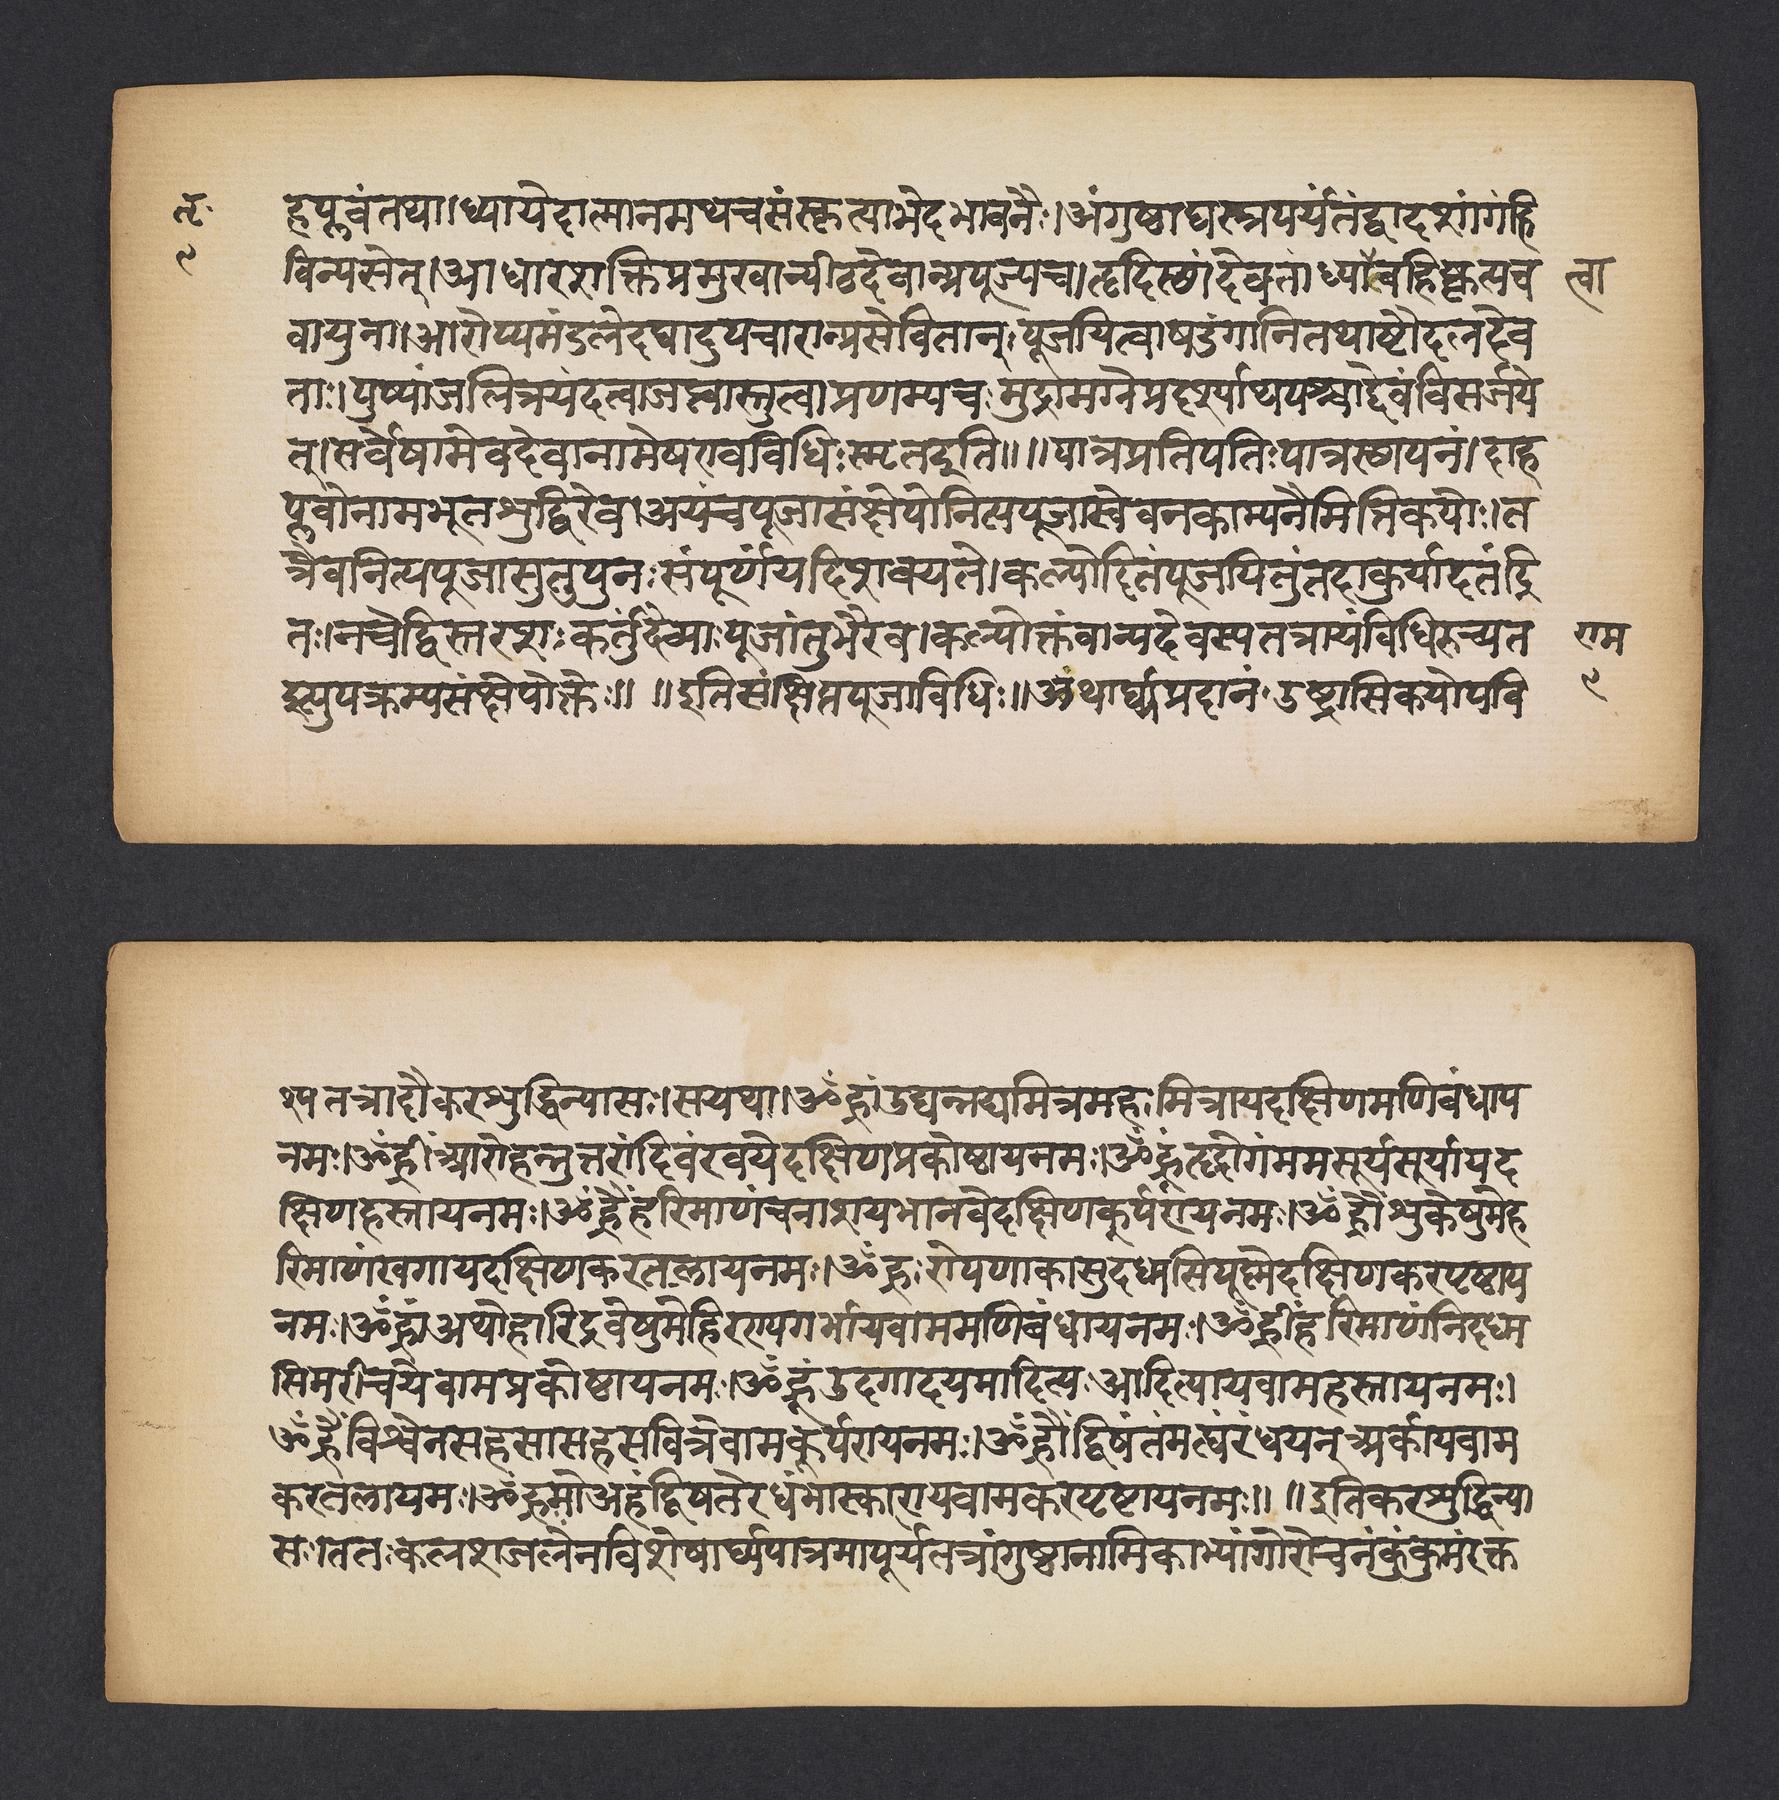 हपूर्वंतथा।ध्यायेदात्मानमथचसंस्कृत्याभेदभावनैः।अंगुष्ठाद्यस्त्रपर्यंतंद्वादशांगंहि
विन्यसेत्।आधारशक्तिप्रमुखान्पीठदेवान्प्रपूज्यच।हृदिस्थांदेवतांध्यावहिष्कृत्यच
त्वा
वायुना।आरोप्यमंडलेदद्यादुपचारान्प्रसेवितान्।पूजयित्वाषडंगानितथाष्टौदलदेव
ताः।पुष्पांजलित्रयंदत्वाजप्त्वास्तुत्वाप्रणम्यच।मुद्रामग्नेप्रदर्श्याथपश्चाद्देवंविसर्जये
त्।सर्वेषामेवदेवानामेषएवविधिःस्मृतइति॥॥पात्रप्रतिपतिःपात्रस्थापनं।दाह
पूर्वोनामभूतशुद्धिरेव।अयंचपूजासंक्षेपोनित्यपूजास्वेवनकाम्यनैमित्तिकयोः।त
त्रैवनित्यपूजासुतुपुनःसंपूर्णयदिशवयते।कल्पोदितंपूजयितुंतदाकुर्यादतंद्रि
तः।नचेद्विस्तरशःकर्तुंदेव्याःपूजांतुभैरव।कल्पोक्तंवान्यदेवस्यतत्रायंविधिरुच्यत
इत्युपक्रम्यसंक्षेपोक्तेः॥॥इतिसंक्षिप्तपूजाविधिः॥अथार्घ्यप्रदानं।उष्ट्रासिकयोपवि
श्यतत्रादौकरशुद्धिन्यासः।सयथा।ॐह्रांउद्यन्नद्यमित्रमहःमित्रायदक्षिणमणिबंधाय
नमः।ॐह्रींआरोहन्नुत्तरांदिवंरवयेदक्षिणप्रकोष्ठायनमः।ॐह्रूंहृद्रोगंममसूर्यसूर्यायद
क्षिणहस्तायनमः।ॐह्रैंहरिमाणंचनाशयभानवेदक्षिणकूर्परायनमः।ॐह्रौंशुकेषुमेह
रिमाणंखगायदक्षिणकरतलायनमः।ॐह्रःरोपणाकासुदध्मसिपूष्णेदक्षिणकरपृष्ठाय
नमः।ॐह्रांअथोहारिद्रवेषुमेहिरण्यगर्भायवाममणिबंधायनमः।ॐह्रींहरिमाणंनिदध्म
सिमरीचयेवामप्रकोष्ठायनमः।ॐह्रूंउदगादयमादित्यःआदित्यायवामहस्तायनमः।
ॐह्रैंविश्वेनसहसासहसवित्रेवामकूर्परायनमः।ॐह्रौंद्विषंतंमह्यंरंधयन्अर्कायवाम
करतलायमः।ॐह्रःमोअहंद्विषतेरधंभास्कारायवामकरपृष्टायनमः॥॥इतिकरशुद्धिन्या
सः।ततःकलशजलेनविशेषार्घ्यपात्रमापूर्यतत्रांगुष्ठानामिकाभ्यांगोरोचनंकुंकुमंरक्त